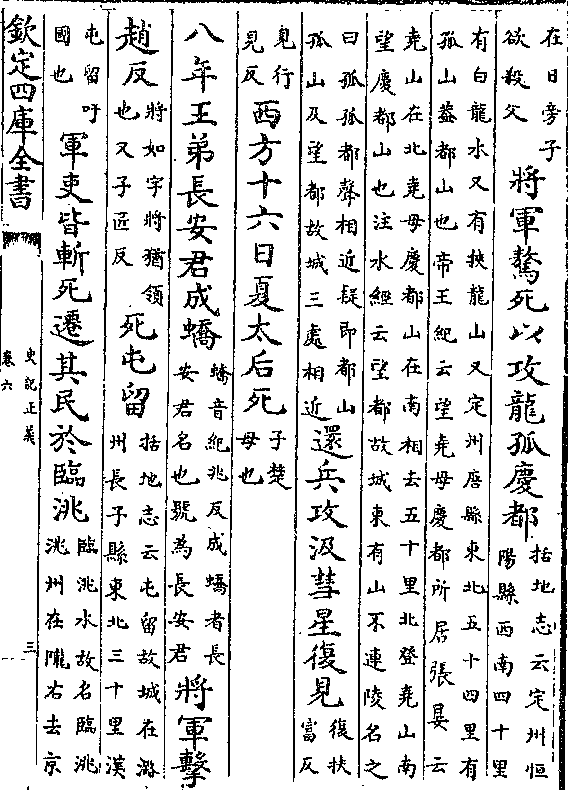 在日旁子欲殺父將軍驁死以攻龍孤慶都括地志云定州恒陽縣西南四十里
有白龍水又有挾龍山又定州唐縣東北五十四里有孤山蓋都山也帝王紀云望堯母慶都所居張晏云
堯山在北堯母慶都山在南相去五十里北登堯山南望慶都山也注水經云望都故城東有山不連陵名之
曰孤孤都聲相近疑即都山孤山及望都故城三處相近還兵攻汲彗星復見復扶富反
見行見反西方十六日夏太后死子楚母也
八年王弟長安君成蟜蟜音紀兆反成蟜者長安君名也號為長安君將軍擊
趙反將如字將猶領也又子匠反死屯留括地志云屯留故城在潞州長子縣東北三十里漢
屯留吁國也軍吏皆斬死遷其民於臨洮臨洮水故名臨洮洮州在隴右去京
欽定四庫全書
史記正義
卷六
三